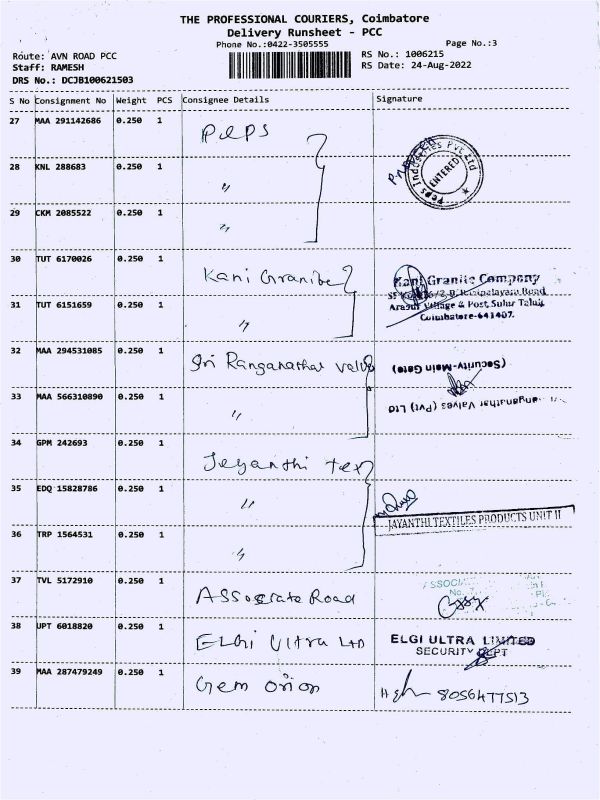 THE PROFESSIONAL COURIERS, Coimbatore
Delivery Runsheet - PCC
Phone No.:0422-3505555
Page No.:3
Route: AVN ROAD PCC
RS No.: 1006215
Staff: RAMESH
RS Date: 24-Aug-2022
DRS No.: DCJB100621503
S No Consignment No Weight PCS Consignee Details Signature
27 MAA 291142686 0.250 1 Peps
Peps Industries Pvt Ltd
ENTERED
28 KNL 288683 0.250 1 "
29 CKM 2085522 0.250 1 "
30 TUT 6170026 0.250 1 Kani Granite
Kani Granite Company
Village & Post Sulur Taluk
Coimbatore-641407.
31 TUT 6151659 0.250 1 "
32 MAA 294531085 0.250 1 Sri Ranganathar valve
(Security-Main Gate)
33 MAA 566310890 0.250 1 "
Valves (Pvt) Ltd
34 GPM 242693 0.250 1 Jeyanthi tex
35 EDQ 15828786 0.250 1 "
JAYANTHI TEXTILES PRODUCTS UNIT II
36 TRP 1564531 0.250 1 "
37 TVL 5172910 0.250 1 Assocrate Road
38 UPT 6018820 0.250 1 ELGi Ultra LTD
ELGI ULTRA LIMITED
SECURITY DEPT
39 MAA 287479249 0.250 1 Gem orion
8056477513